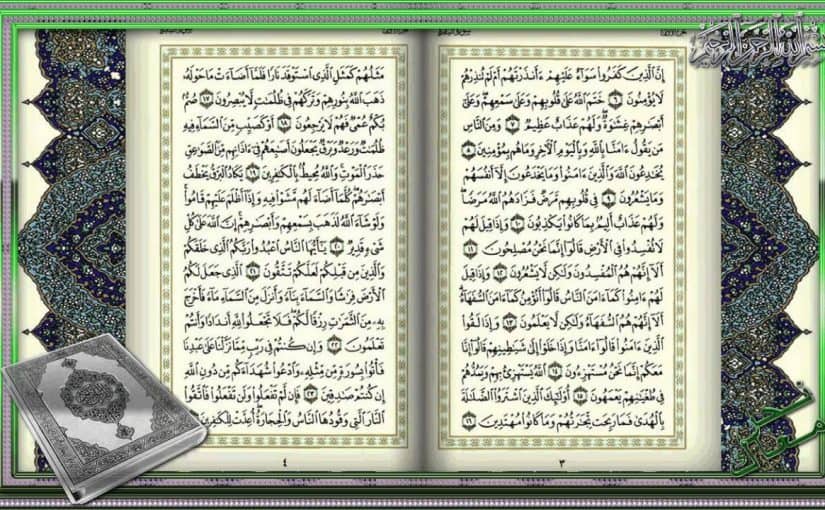 بسم الله الرحمن الرحيم
إِنَّ ٱلَّذِينَ كَفَرُوا۟ سَوَآءٌ عَلَيْهِمْ ءَأَنذَرْتَهُمْ أَمْ لَمْ تُنذِرْهُمْ
لَا يُؤْمِنُونَ ٦ خَتَمَ ٱللَّهُ عَلَىٰ قُلُوبِهِمْ وَعَلَىٰ سَمْعِهِمْ ۖ وَعَلَىٰٓ
أَبْصَٰرِهِمْ غِشَٰوَةٌ ۖ وَلَهُمْ عَذَابٌ عَظِيمٌ ٧ وَمِنَ ٱلنَّاسِ
مَن يَقُولُ ءَامَنَّا بِٱللَّهِ وَبِٱلْيَوْمِ ٱلْـَٔاخِرِ وَمَا هُم بِمُؤْمِنِينَ ٨
يُخَٰدِعُونَ ٱللَّهَ وَٱلَّذِينَ ءَامَنُوا۟ وَمَا يَخْدَعُونَ إِلَّآ أَنفُسَهُمْ
وَمَا يَشْعُرُونَ ٩ فِى قُلُوبِهِم مَّرَضٌ فَزَادَهُمُ ٱللَّهُ مَرَضًا ۖ
وَلَهُمْ عَذَابٌ أَلِيمٌۢ بِمَا كَانُوا۟ يَكْذِبُونَ ١٠ وَإِذَا قِيلَ لَهُمْ
لَا تُفْسِدُوا۟ فِى ٱلْأَرْضِ قَالُوٓا۟ إِنَّمَا نَحْنُ مُصْلِحُونَ ١١
أَلَآ إِنَّهُمْ هُمُ ٱلْمُفْسِدُونَ وَلَٰكِن لَّا يَشْعُرُونَ ١٢ وَإِذَا قِيلَ
لَهُمْ ءَامِنُوا۟ كَمَآ ءَامَنَ ٱلنَّاسُ قَالُوٓا۟ أَنُؤْمِنُ كَمَآ ءَامَنَ ٱلسُّفَهَآءُ ۗ
أَلَآ إِنَّهُمْ هُمُ ٱلسُّفَهَآءُ وَلَٰكِن لَّا يَعْلَمُونَ ١٣ وَإِذَا لَقُوا۟
ٱلَّذِينَ ءَامَنُوا۟ قَالُوٓا۟ ءَامَنَّا وَإِذَا خَلَوْا۟ إِلَىٰ شَيَٰطِينِهِمْ قَالُوٓا۟ إِنَّا
مَعَكُمْ إِنَّمَا نَحْنُ مُسْتَهْزِءُونَ ١٤ ٱللَّهُ يَسْتَهْزِئُ بِهِمْ وَيَمُدُّهُمْ
فِى طُغْيَٰنِهِمْ يَعْمَهُونَ ١٥ أُو۟لَٰٓئِكَ ٱلَّذِينَ ٱشْتَرَوُا۟ ٱلضَّلَٰلَةَ
بِٱلْهُدَىٰ فَمَا رَبِحَت تِّجَٰرَتُهُمْ وَمَا كَانُوا۟ مُهْتَدِينَ ١٦
٣
مَثَلُهُمْ كَمَثَلِ ٱلَّذِى ٱسْتَوْقَدَ نَارًا فَلَمَّآ أَضَآءَتْ مَا حَوْلَهُۥ
ذَهَبَ ٱللَّهُ بِنُورِهِمْ وَتَرَكَهُمْ فِى ظُلُمَٰتٍ لَّا يُبْصِرُونَ ١٧ صُمٌّۢ
بُكْمٌ عُمْىٌ فَهُمْ لَا يَرْجِعُونَ ١٨ أَوْ كَصَيِّبٍ مِّنَ ٱلسَّمَآءِ فِيهِ
ظُلُمَٰتٌ وَرَعْدٌ وَبَرْقٌ يَجْعَلُونَ أَصَٰبِعَهُمْ فِىٓ ءَاذَانِهِم مِّنَ ٱلصَّوَٰعِقِ
حَذَرَ ٱلْمَوْتِ ۚ وَٱللَّهُ مُحِيطٌۢ بِٱلْكَٰفِرِينَ ١٩ يَكَادُ ٱلْبَرْقُ يَخْطَفُ
أَبْصَٰرَهُمْ ۖ كُلَّمَآ أَضَآءَ لَهُم مَّشَوْا۟ فِيهِ وَإِذَآ أَظْلَمَ عَلَيْهِمْ قَامُوا۟ ۚ
وَلَوْ شَآءَ ٱللَّهُ لَذَهَبَ بِسَمْعِهِمْ وَأَبْصَٰرِهِمْ ۚ إِنَّ ٱللَّهَ عَلَىٰ كُلِّ
شَىْءٍ قَدِيرٌ ٢٠ يَٰٓأَيُّهَا ٱلنَّاسُ ٱعْبُدُوا۟ رَبَّكُمُ ٱلَّذِى خَلَقَكُمْ
وَٱلَّذِينَ مِن قَبْلِكُمْ لَعَلَّكُمْ تَتَّقُونَ ٢١ ٱلَّذِى جَعَلَ لَكُمُ
ٱلْأَرْضَ فِرَٰشًا وَٱلسَّمَآءَ بِنَآءً وَأَنزَلَ مِنَ ٱلسَّمَآءِ مَآءً فَأَخْرَجَ
بِهِۦ مِنَ ٱلثَّمَرَٰتِ رِزْقًا لَّكُمْ ۖ فَلَا تَجْعَلُوا۟ لِلَّهِ أَندَادًا وَأَنتُمْ
تَعْلَمُونَ ٢٢ وَإِن كُنتُمْ فِى رَيْبٍ مِّمَّا نَزَّلْنَا عَلَىٰ عَبْدِنَا
فَأْتُوا۟ بِسُورَةٍ مِّن مِّثْلِهِۦ وَٱدْعُوا۟ شُهَدَآءَكُم مِّن دُونِ ٱللَّهِ
إِن كُنتُمْ صَٰدِقِينَ ٢٣ فَإِن لَّمْ تَفْعَلُوا۟ وَلَن تَفْعَلُوا۟ فَٱتَّقُوا۟
ٱلنَّارَ ٱلَّتِى وَقُودُهَا ٱلنَّاسُ وَٱلْحِجَارَةُ ۖ أُعِدَّتْ لِلْكَٰفِرِينَ
٤